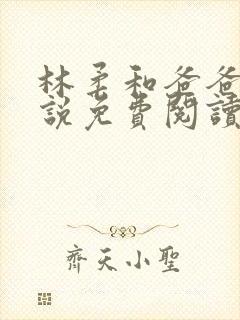 林柔和爸爸
說免費閱讀
齊天小聖